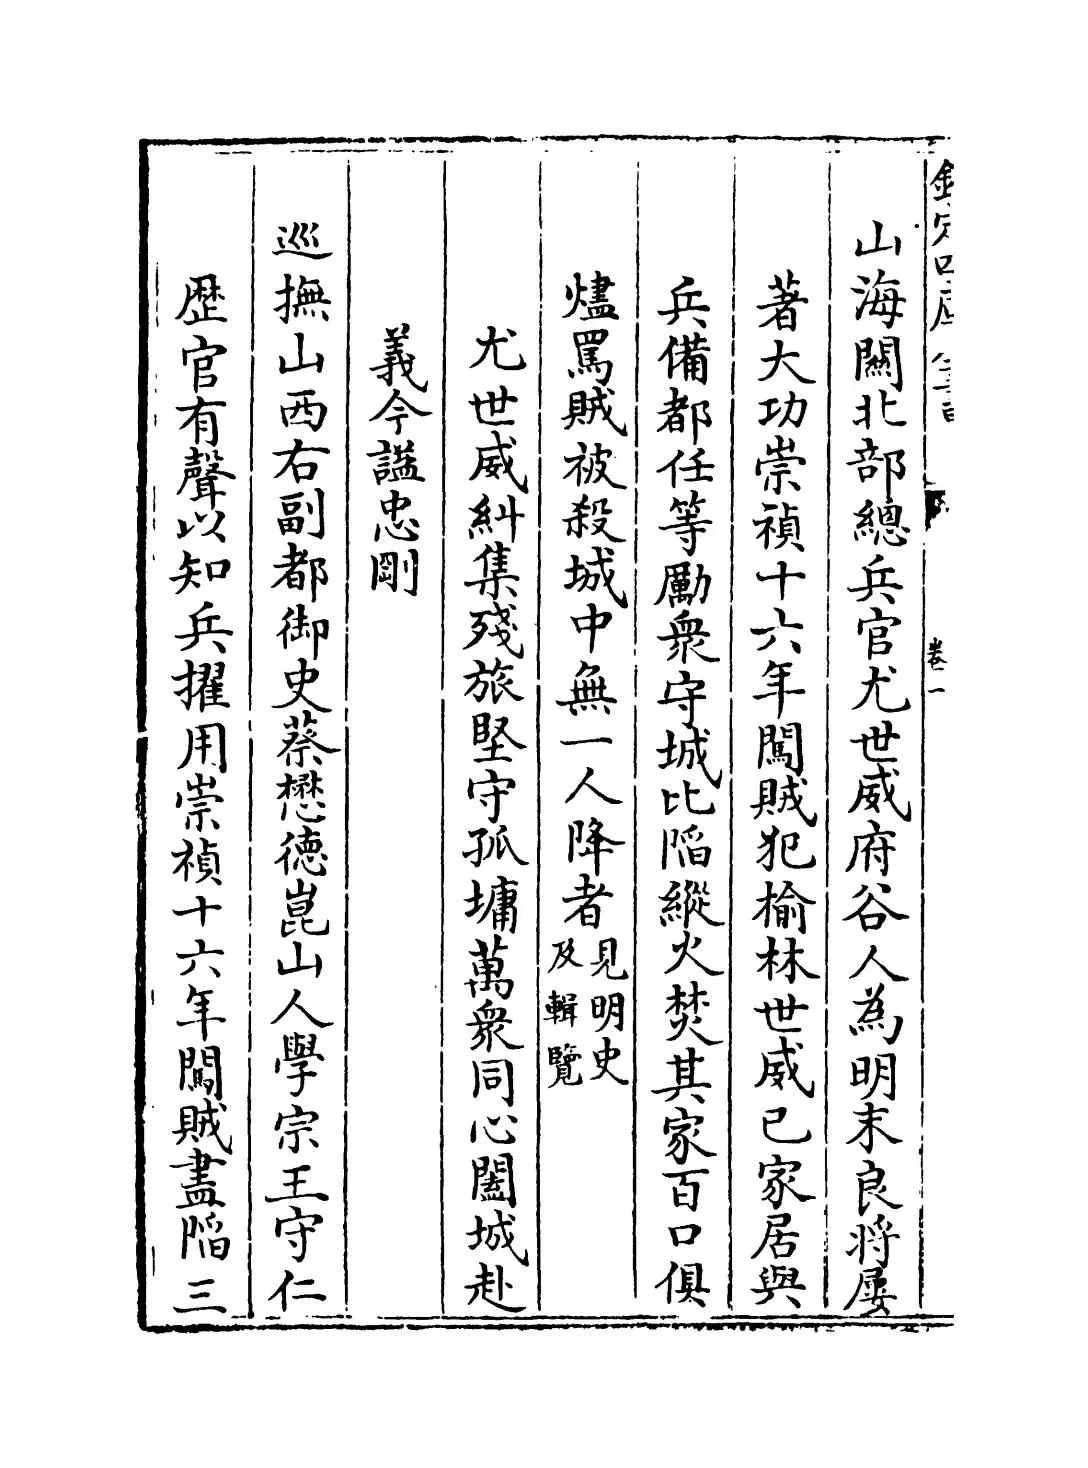 欽定四庫全書
卷一
山海關北部總兵官尤世威府谷人為明末良將屢
著大功崇禎十六年闖賊犯榆林世威已家居與
兵備都任等勵衆守城比陷縱火焚其家百口俱
燼罵賊被殺城中無一人降者見明史及輯覽
尤世威糾集殘旅堅守孤墉萬衆同心闔城赴
義今謚忠剛
巡撫山西右副都御史蔡懋德崑山人學宗王守仁
歷官有聲以知兵擢用崇禎十六年闖賊盡陷三